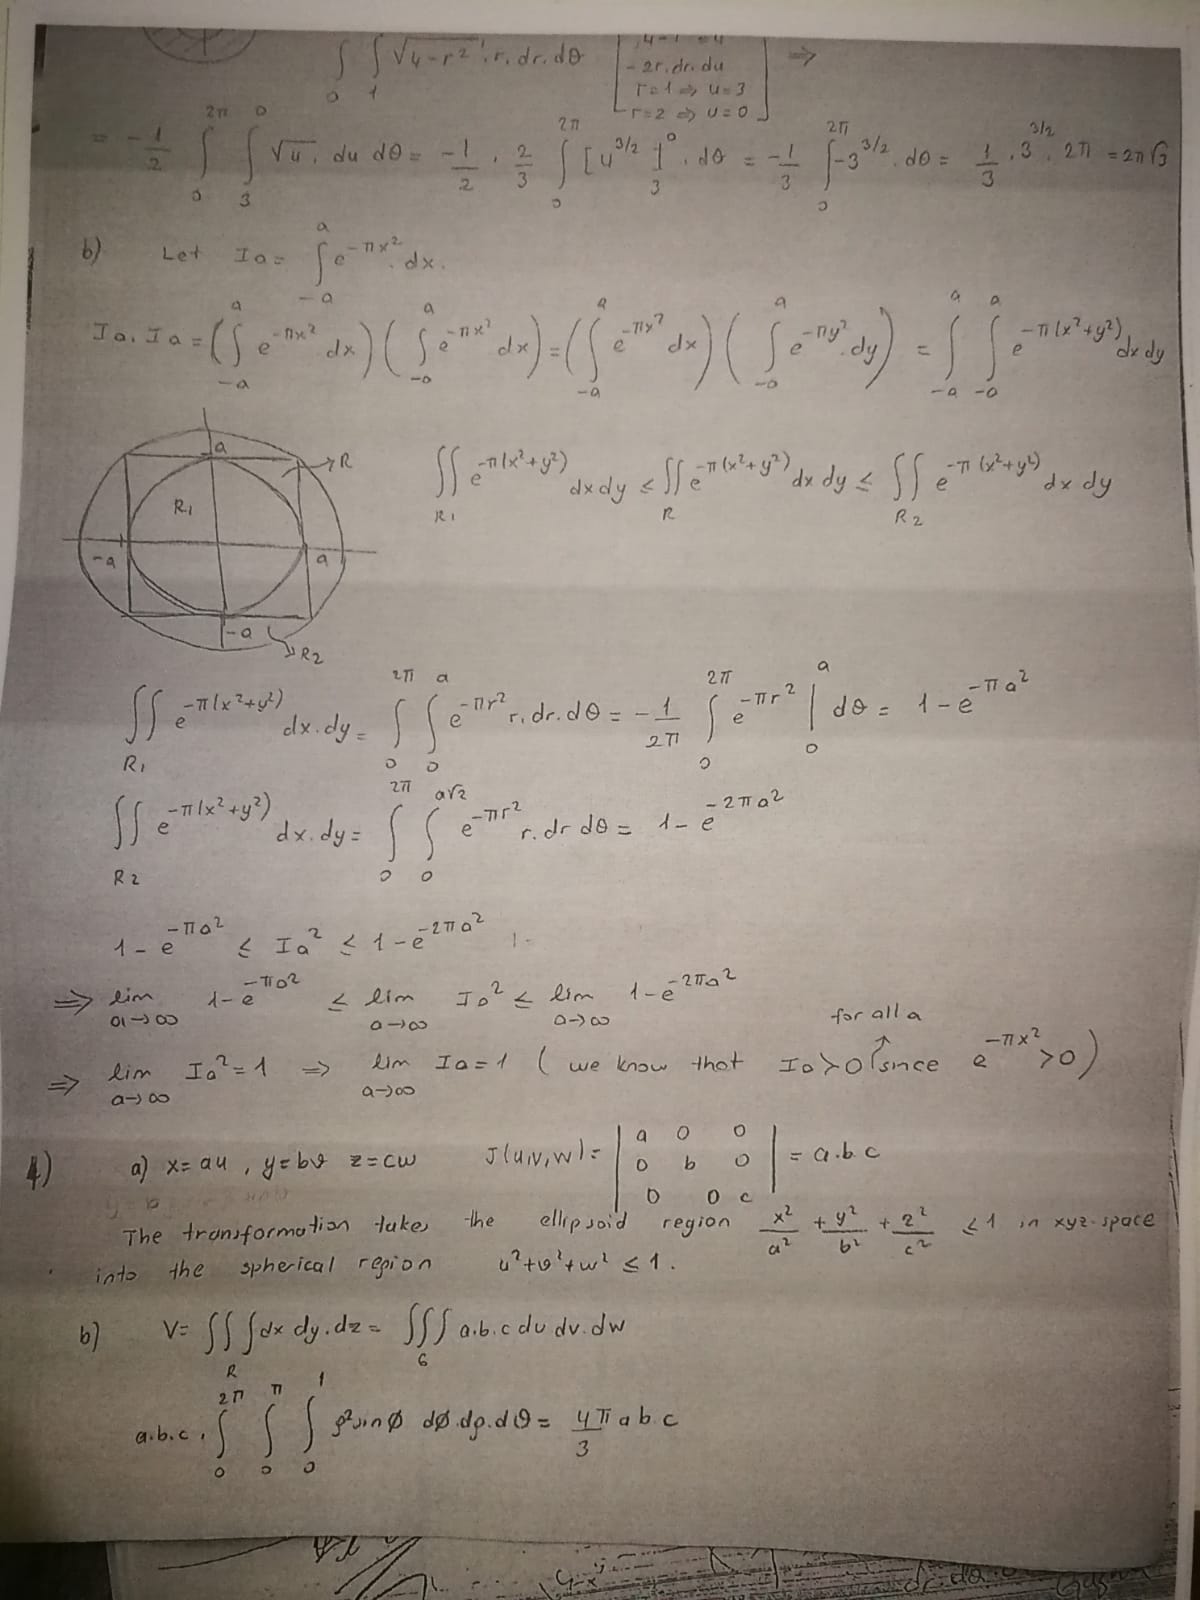 ∫₀ ∫₁ √(4-r²) . r. dr. dθ [ -2r. dr. du r=1 ⇒ u=3 r=2 ⇒ u=0 ] ⇒
= -1/2 ∫₀^2π ∫₃^0 √u . du dθ = -1/2 . 2/3 ∫₀^2π [u^3/2]₃^0 . dθ = -1/3 ∫₀^2π -3^3/2 . dθ = 1/3 . 3^3/2 . 2π = 2π√3
b) Let Ia = ∫₋ₐ^a e^-πx² . dx.
Ia. Ia = (∫₋ₐ^a e^-πx² dx) (∫₋ₐ^a e^-πx² dx) = (∫₋ₐ^a e^-πx² dx) (∫₋ₐ^a e^-πy² . dy) = ∫₋ₐ^a ∫₋ₐ^a e^-π(x²+y²) dx dy
a R
R₁
-a a
-a R2
∬_R₁ e^-π(x²+y²) dx dy ≤ ∬_R e^-π(x²+y²) dx dy ≤ ∬_R2 e^-π(x²+y²) dx dy
∬_R₁ e^-π(x²+y²) dx. dy = ∫₀^2π ∫₀^a e^-πr² r. dr. dθ = -1/2π ∫₀^2π e^-πr² |₀^a dθ = 1-e^-πa²
∬_R2 e^-π(x²+y²) dx. dy = ∫₀^2π ∫₀^a√2 e^-πr² r. dr dθ = 1-e^-2πa²
1-e^-πa² ≤ Ia² ≤ 1-e^-2πa²
⇒ lim a→∞ 1-e^-πa² ≤ lim a→∞ Ia² ≤ lim a→∞ 1-e^-2πa²
for all a
⇒ lim a→∞ Ia² = 1 ⇒ lim a→∞ Ia = 1 ( we know that Ia>0 (since e^-πx² >0)
4) a) x=au , y=bv z=cw J(u,v,w) = | a 0 0 0 b 0 0 0 c | = a.b.c
The transformation takes the ellipsoid region x²/a² + y²/b² + z²/c² ≤1 in xyz-space
into the spherical region u²+v²+w² ≤1.
b) V= ∭_R dx dy. dz = ∭_G a.b.c du dv. dw
a.b.c. ∫₀^2π ∫₀^π ∫₀^1 ρ² sinΦ dΦ. dρ. dθ = 4π/3 a b. c